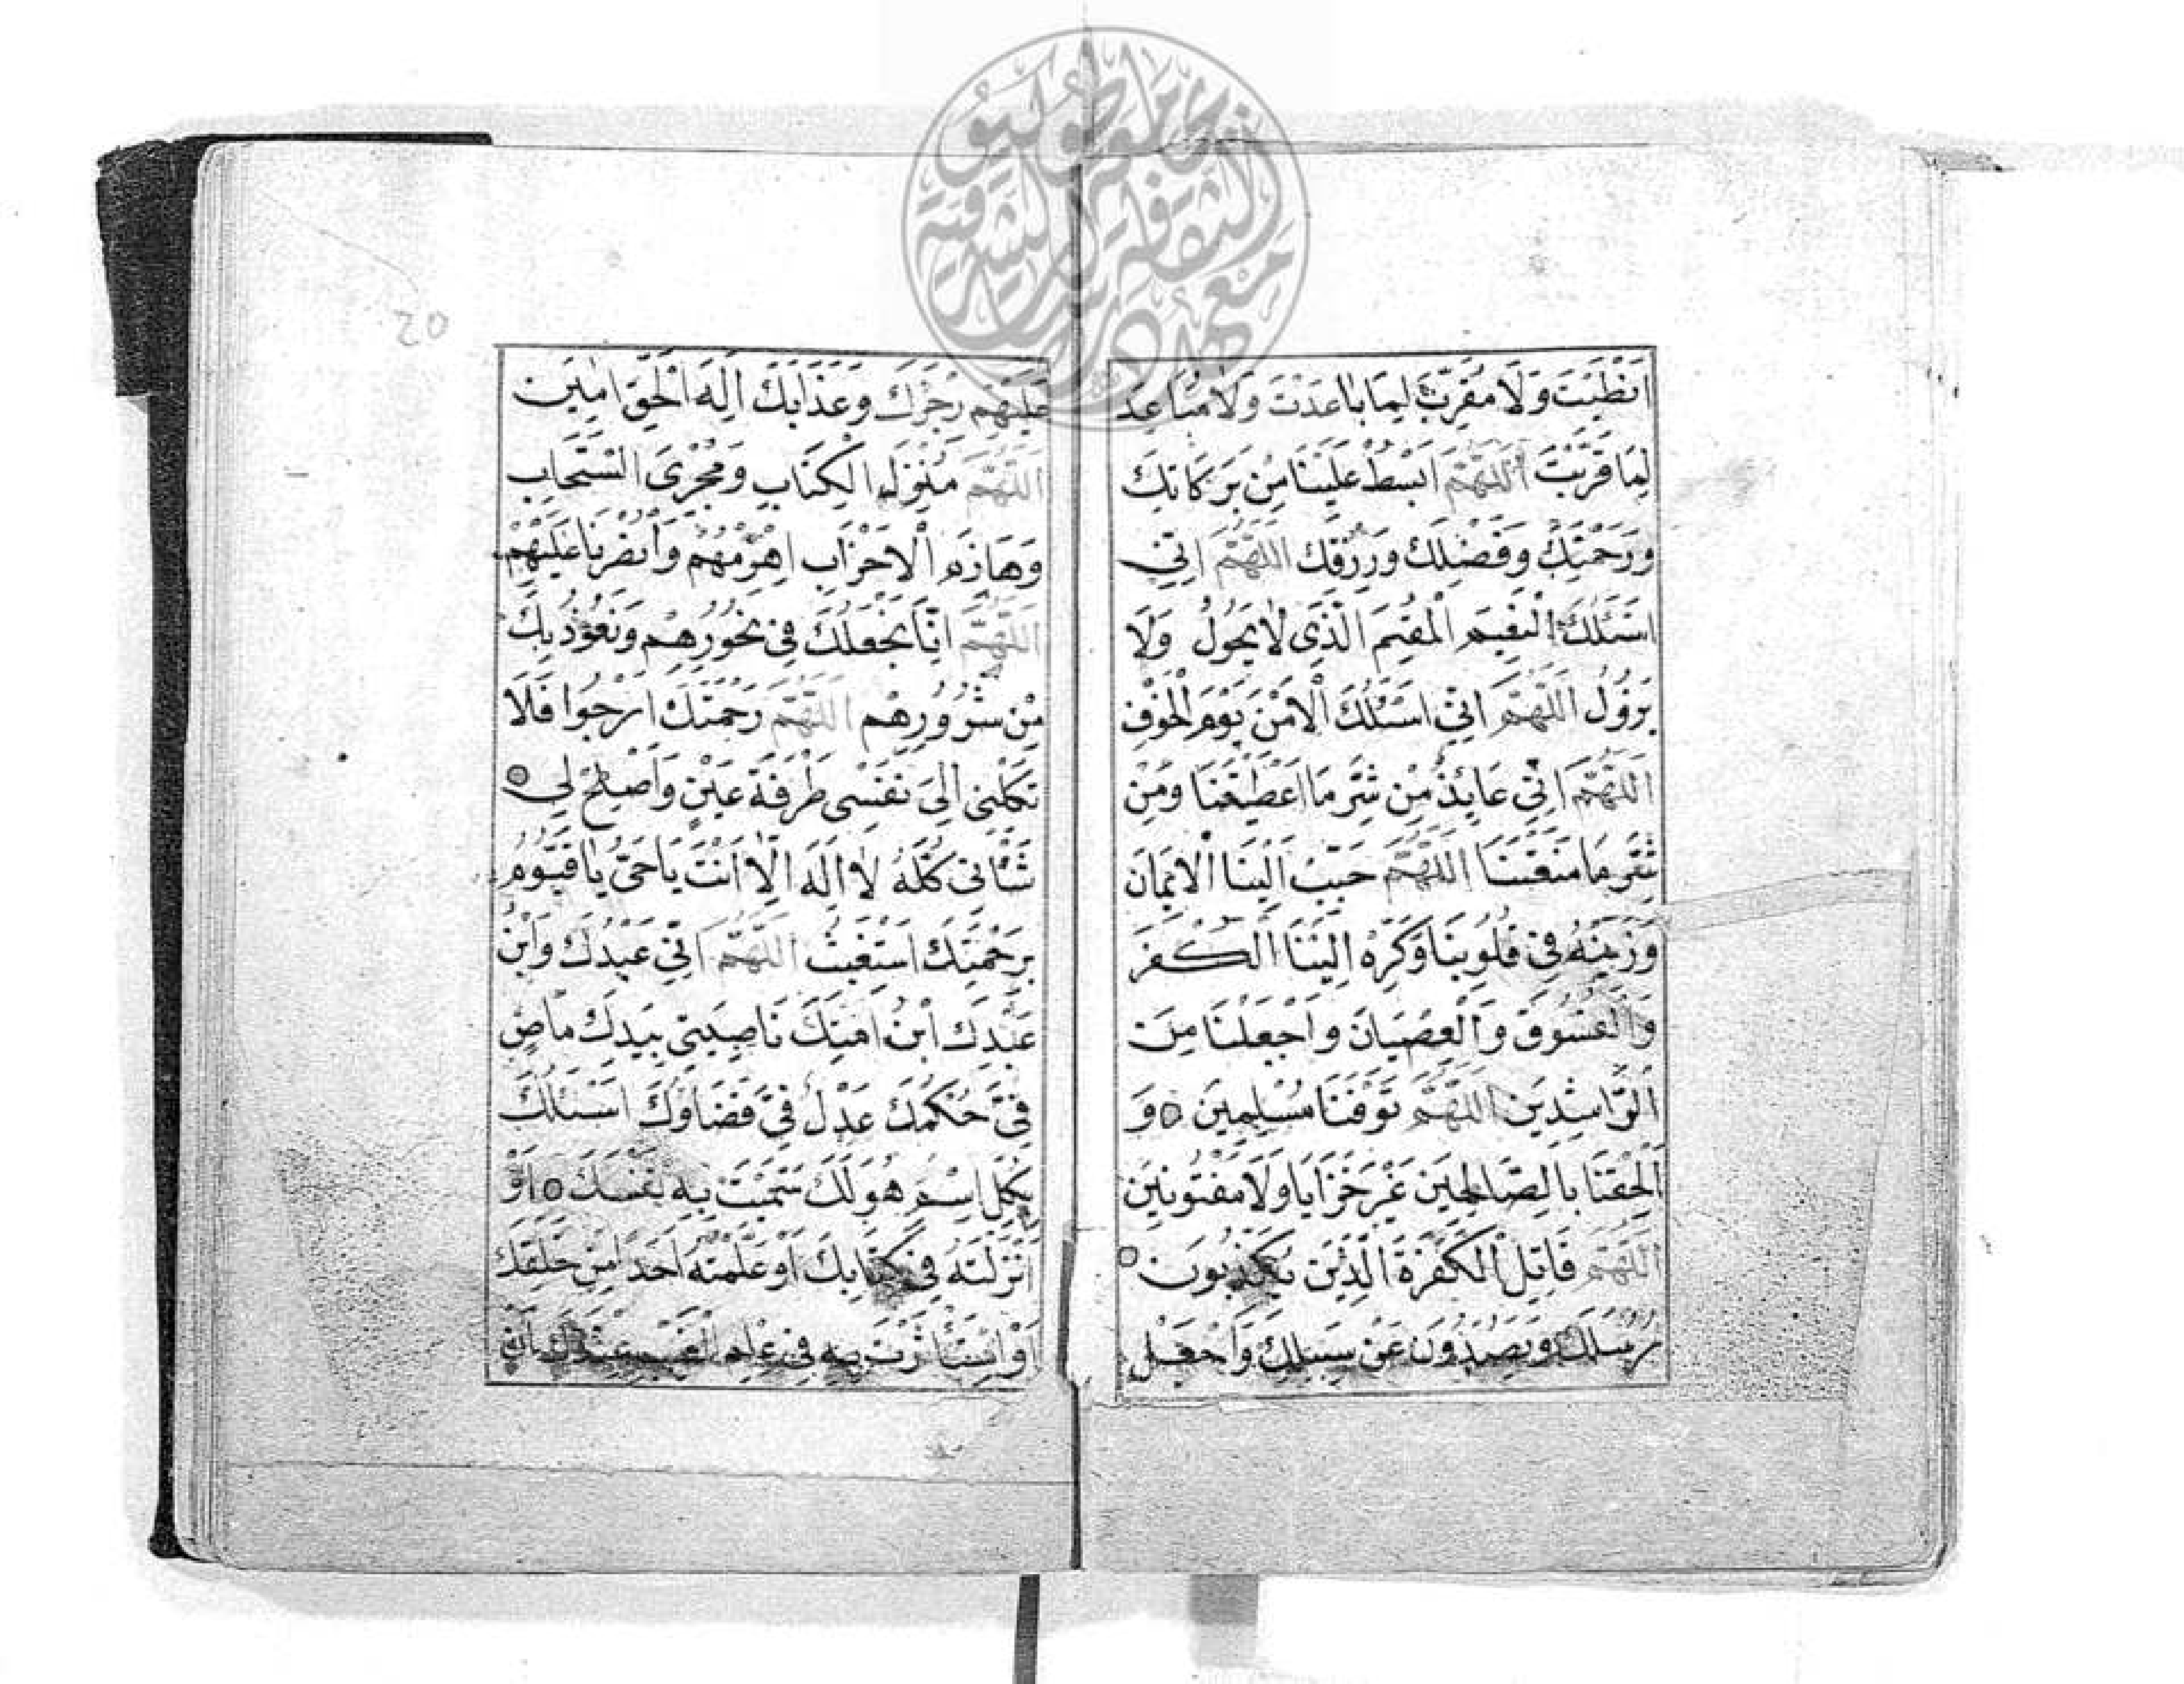 اَنْطَيْتَ وَلَا مُقَرِّبَ لِمَا بَاعَدْتَ وَلَا مُبَاعِدَ
لِمَا قَرَّبْتَ اَللّٰهُمَّ ابْسُطْ عَلَيْنَا مِنْ بَرَكَاتِكَ
وَرَحْمَتِكَ وَفَضْلِكَ وَرِزْقِكَ اَللّٰهُمَّ اِنِّي
اَسْئَلُكَ النَّعِيْمَ الْمُقِيْمَ الَّذِي لَا يَحُوْلُ وَلَا
يَزُوْلُ اَللّٰهُمَّ اِنِّي اَسْئَلُكَ الْاَمْنَ يَوْمَ الْخَوْفِ
اَللّٰهُمَّ اِنِّي عَايِذٌ مِنْ شَرِّ مَا اَعْطَيْتَنَا وَمِنْ
شَرِّ مَا مَنَعْتَنَا اَللّٰهُمَّ حَبِّبْ اِلَيْنَا الْاِيْمَانَ
وَزَيِّنْهُ فِي قُلُوْبِنَا وَكَرِّهْ اِلَيْنَا الْكُفْرَ
وَالْفُسُوْقَ وَالْعِصْيَانَ وَاجْعَلْنَا مِنَ
الرَّاشِدِيْنَ اَللّٰهُمَّ تَوَفَّنَا مُسْلِمِيْنَ وَ
اَلْحِقْنَا بِالصَّالِحِيْنَ غَيْرَ خَزَايَا وَلَا مَفْتُوْنِيْنَ
اَللّٰهُمَّ قَاتِلِ الْكَفَرَةَ الَّذِيْنَ يُكَذِّبُوْنَ
رُسُلَكَ وَيَصُدُّوْنَ عَنْ سَبِيْلِكَ وَاجْعَلْ
عَلَيْهِمْ رِجْزَكَ وَعَذَابَكَ اِلٰهَ الْحَقِّ اٰمِيْنَ
اَللّٰهُمَّ مُنْزِلَ الْكِتَابِ وَمُجْرِيَ السَّحَابِ
وَهَازِمَ الْاَحْزَابِ اهْزِمْهُمْ وَانْصُرْنَا عَلَيْهِمْ
اَللّٰهُمَّ اِنَّا نَجْعَلُكَ فِي نُحُوْرِهِمْ وَنَعُوْذُ بِكَ
مِنْ شُرُوْرِهِمْ اَللّٰهُمَّ رَحْمَتَكَ اَرْجُوا فَلَا
تَكِلْنِي اِلَى نَفْسِي طَرْفَةَ عَيْنٍ وَاَصْلِحْ لِي
شَأْنِي كُلَّهُ لَا اِلٰهَ اِلَّا اَنْتَ يَا حَيُّ يَا قَيُّوْمُ
بِرَحْمَتِكَ اَسْتَغِيْثُ اَللّٰهُمَّ اِنِّي عَبْدُكَ وَابْنُ
عَبْدِكَ ابْنُ اَمَتِكَ نَاصِيَتِي بِيَدِكَ مَاضٍ
فِيَّ حُكْمُكَ عَدْلٌ فِيَّ قَضَاؤُكَ اَسْئَلُكَ
بِكُلِّ اِسْمٍ هُوَ لَكَ سَمَّيْتَ بِهِ نَفْسَكَ اَوْ
اَنْزَلْتَهُ فِي كِتَابِكَ اَوْ عَلَّمْتَهُ اَحَدًا مِنْ خَلْقِكَ
اَوِ اسْتَأْثَرْتَ بِهِ فِي عِلْمِ الْغَيْبِ عِنْدَكَ اَنْ
20
معهد دراسات الثقافة الشرقية جامعة طوكيو